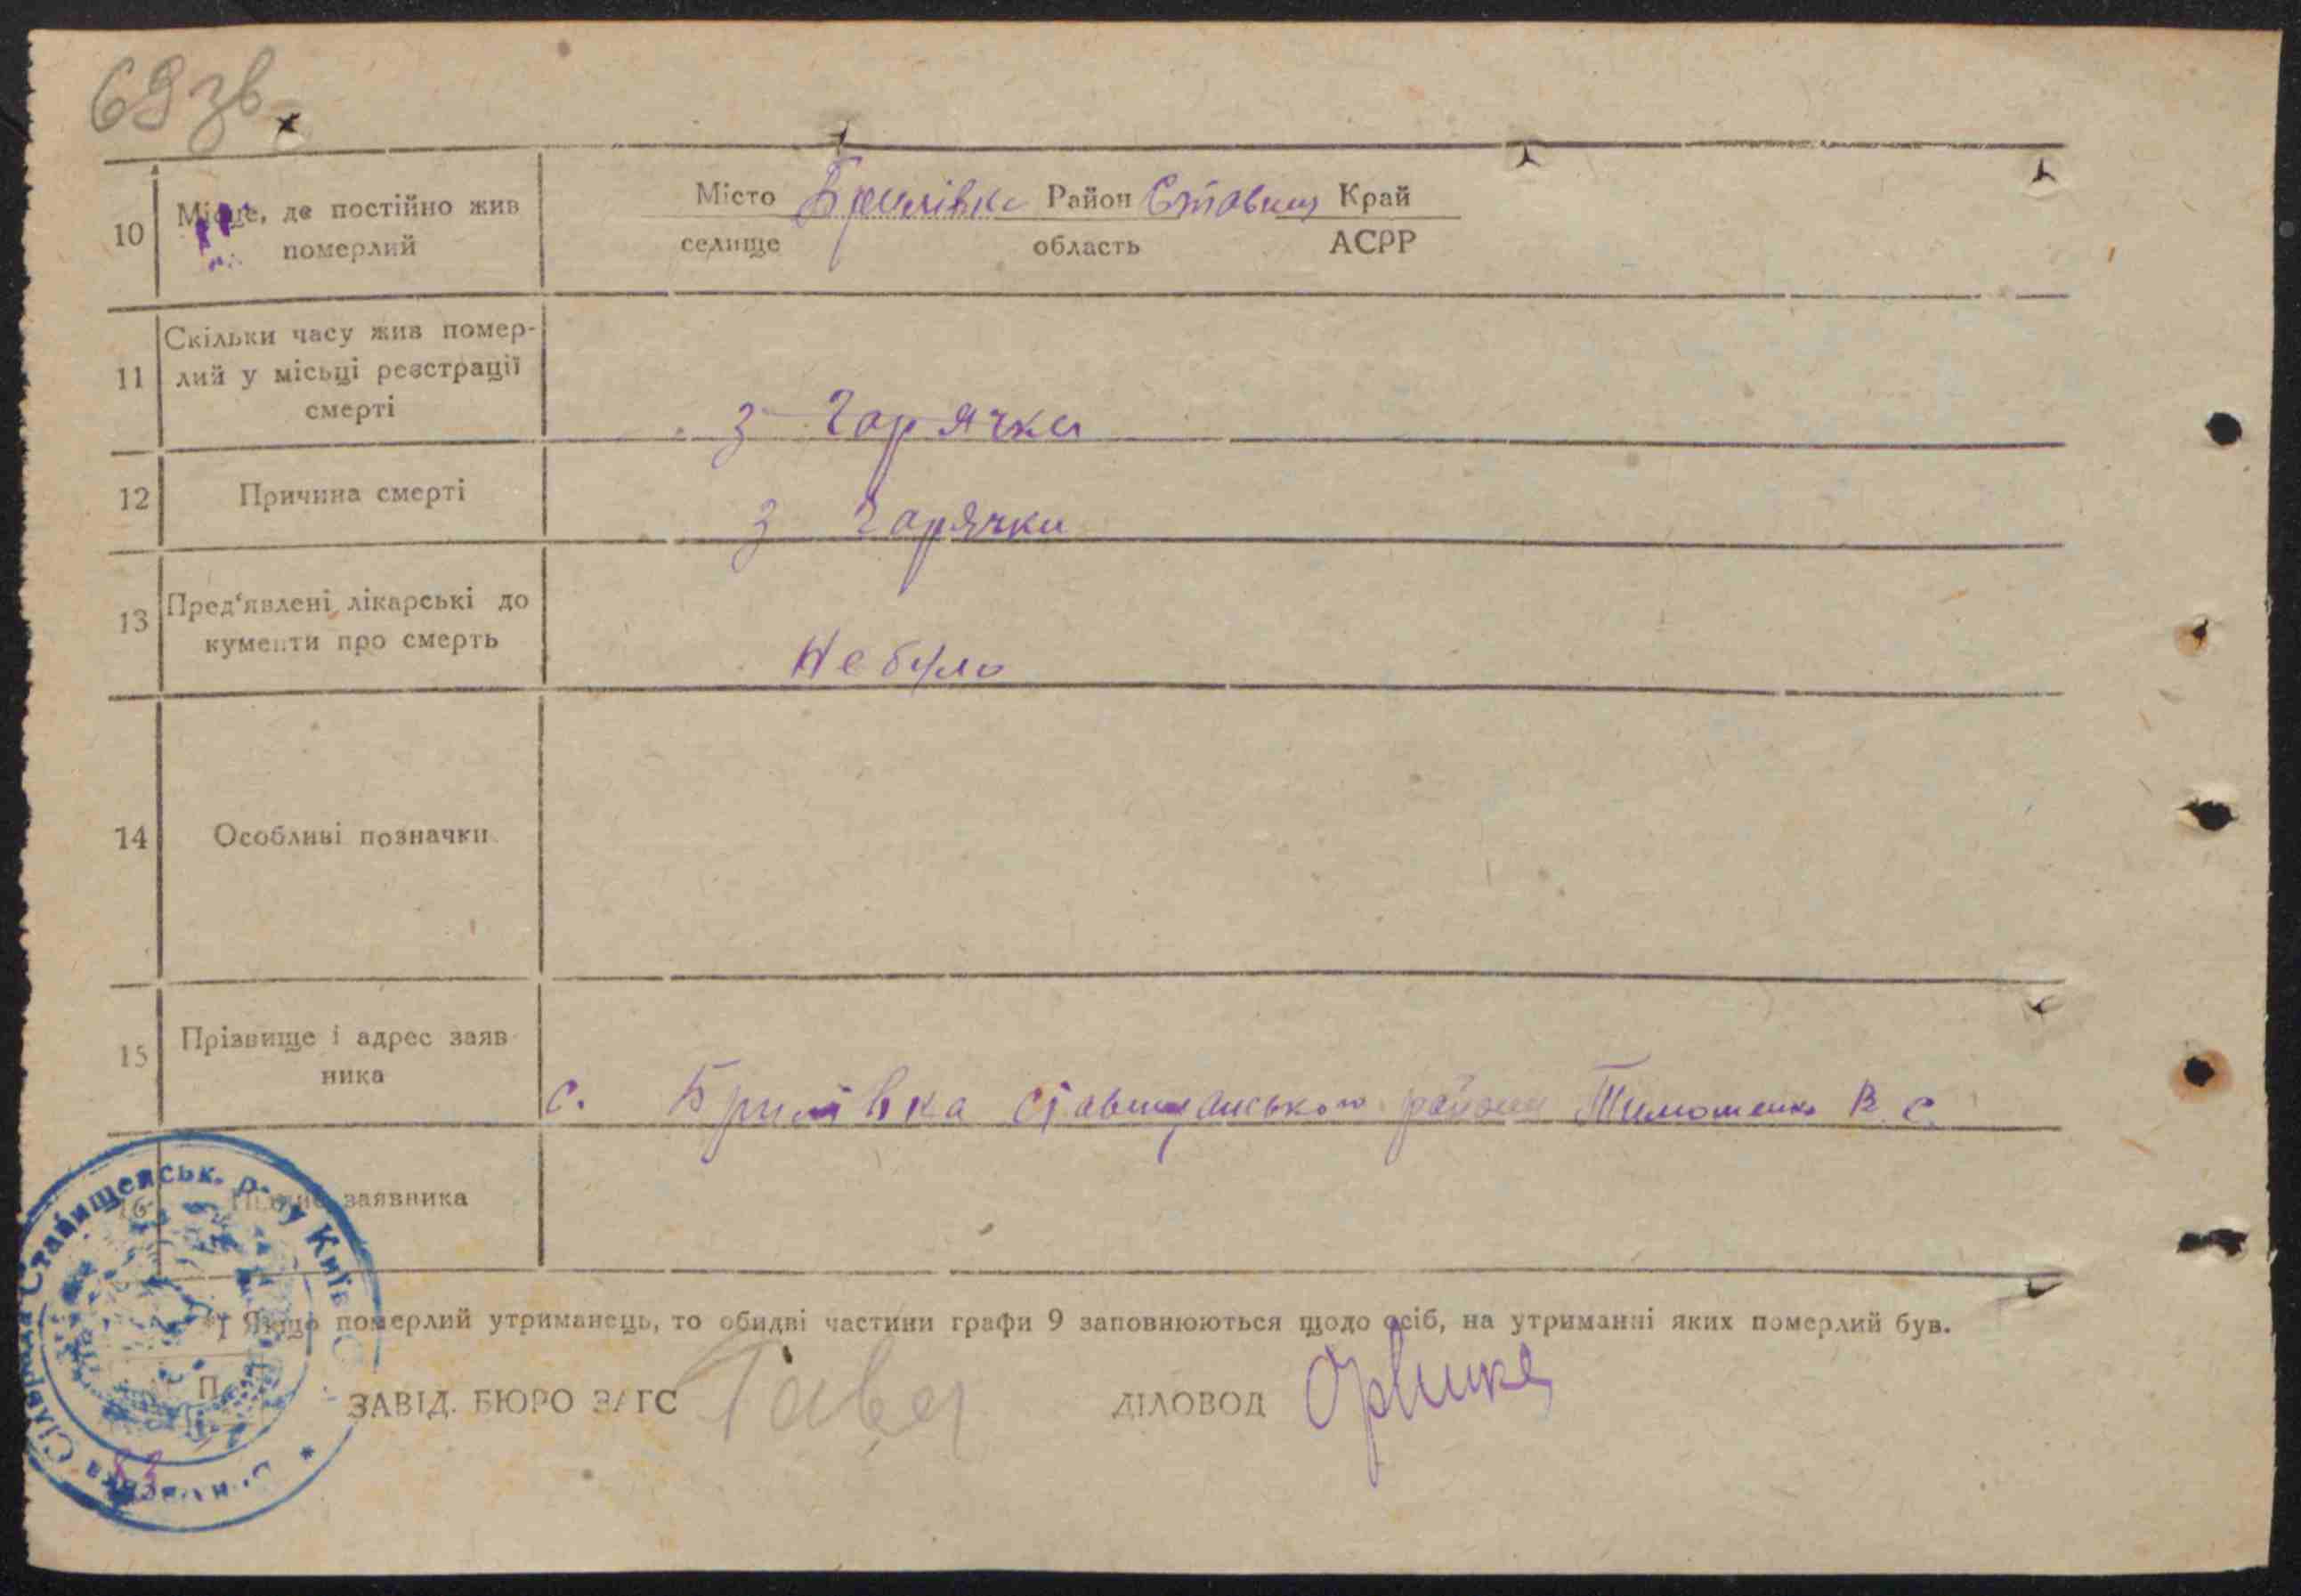 69 зв
10 Місце, де постійно жив померлий
Місто Брилівка Район Ставищ Край
селище область АСРР
11 Скільки часу жив помер-
лий у місьці реєстрації
смерті
з Горячки
12 Причина смерті
з Горячки
13 Пред'явлені лікарські до
кументи про смерть
Не було
14 Особливі позначки
15 Прізвище і адрес заяв
ника
с. Брилівка Ставищанського району Тимошенко В. С.
16 Підпис заявника
*) Якщо померлий утриманець, то обидві частини графи 9 заповнюються щодо осіб, на утриманні яких померлий був.
П
ЗАВІД. БЮРО ЗАГС
ДІЛОВОД
Сільрада Ставищенськ. р-ну Київ